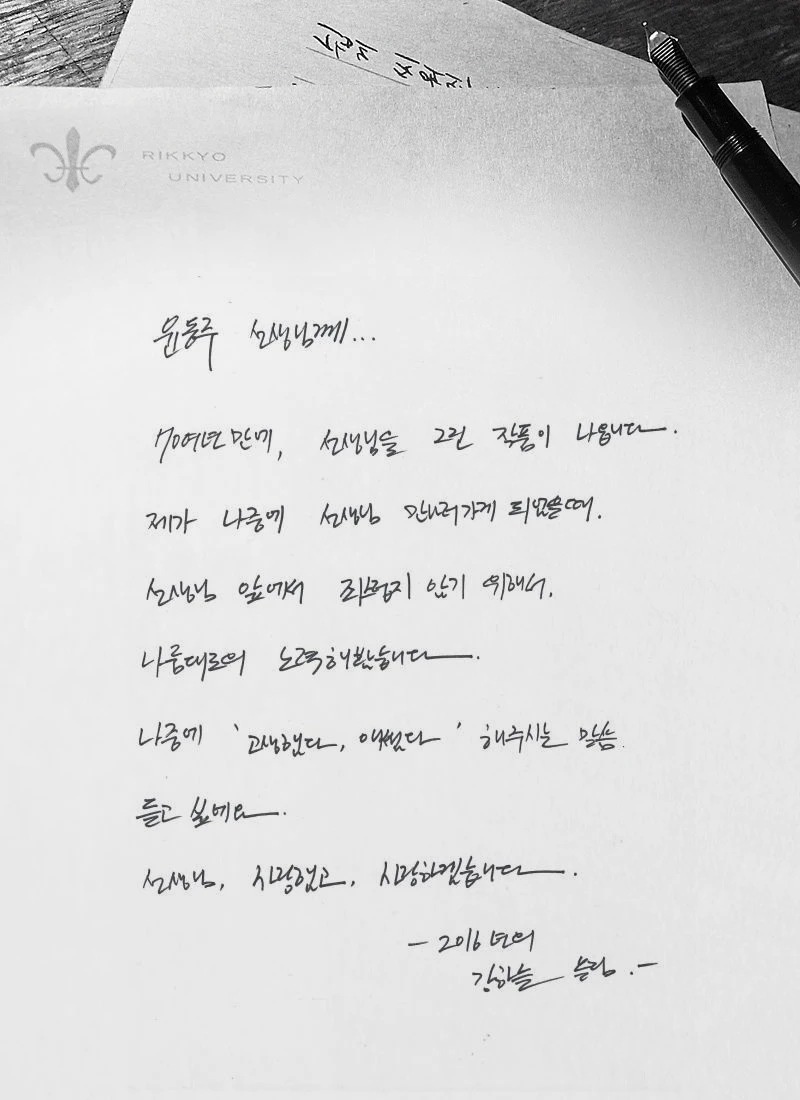 RIKKYO
UNIVERSITY
윤동주 선생님께...
70여년만에, 선생님을 그린 작품이 나옵니다.
제가 나중에 선생님 만나러가게 되었을때.
선생님 앞에서 죄스럽지 않기 위해서.
나름대로의 노력해봤습니다.
나중에 '고생했다, 애썼다' 해주시는 말씀
듣고 싶네요.
선생님, 사랑했고, 사랑하겠습니다.
- 2016년의
강하늘 올림.-